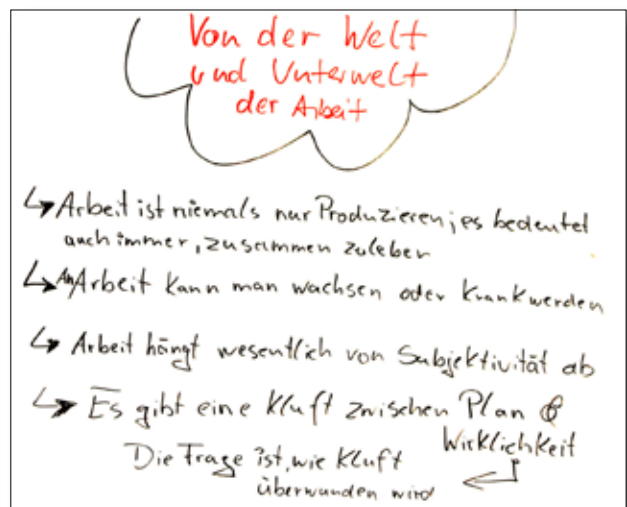 Von der Welt
und Unterwelt
der Arbeit
↳ Arbeit ist niemals nur Produzieren; es bedeutet
auch immer, zusammen zuleben
↳ An Arbeit kann man wachsen oder krank werden
↳ Arbeit hängt wesentlich von Subjektivität ab
↳ Es gibt eine Kluft zwischen Plan &
Wirklichkeit
Die Frage ist, wie Kluft
überwunden wird